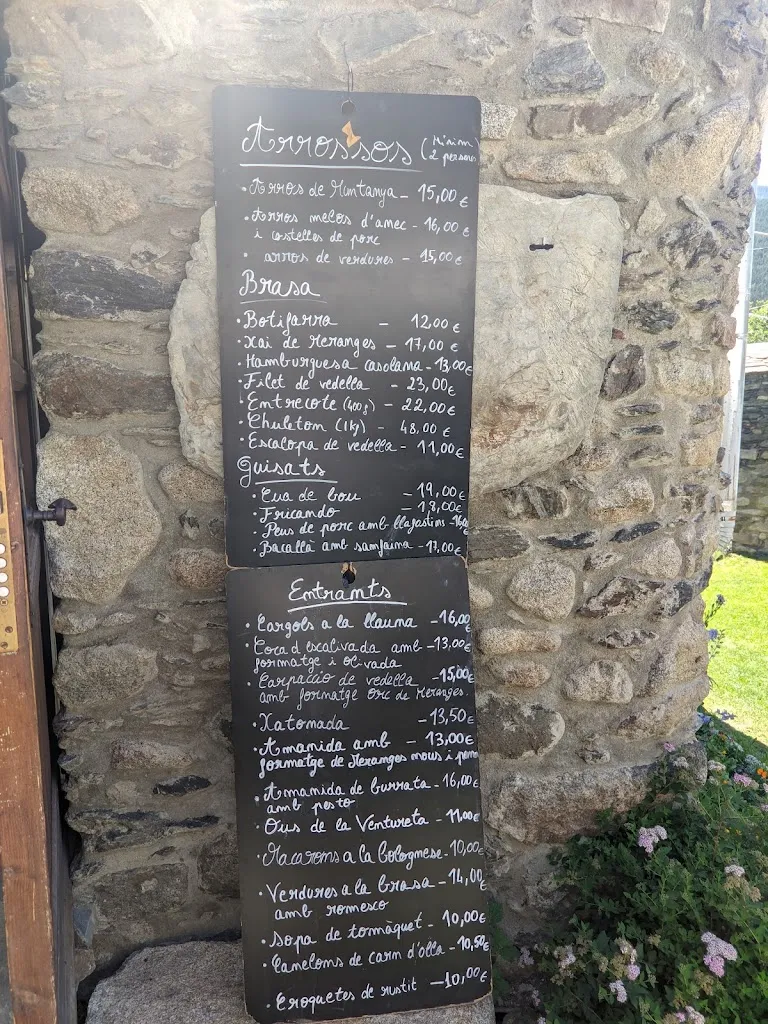 Arrossos (Mínim
2 persones
· Arros de Muntanya - 15,00 €
· Arros melos d'anec - 16,00 €
i costelles de porc
· arros de verdures - 15,00 €
Brasa
· Botifarra - 12,00 €
· Xai de Meranges - 17,00 €
· Hamburguesa casolana - 13,00€
· Filet de vedella - 23,00€
· Entrecote (400g) - 22,00€
· Chuleton (1kg) - 48,00 €
· Escalopa de vedella - 11,00€
Guisats
· Cua de bou - 19,00€
· Fricando - 18,00€
· Peus de porc amb llagostins -
· Bacallà amb samfaina - 17,00€
Entrants
· Cargols a la llauna - 16,00
· Coca d'escalivada amb - 13,00€
formatge i olivada
· Carpaccio de vedella - 15,00€
amb formatge Orc de Meranges.
· Xatonada - 13,50€
· Amanida amb - 13,00€
formatge de Meranges nous i
· Amanida de burrata - 16,00€
amb pesto
· Ous de la Ventureta - 11,00€
· Macarons a la bolognese - 10,00€
· Verdures a la brasa - 14,00€
amb romesco
· Sopa de tomàquet - 10,00€
· Canelons de carn d'olla - 10,50€
· Croquetes de rustit - 10,00€